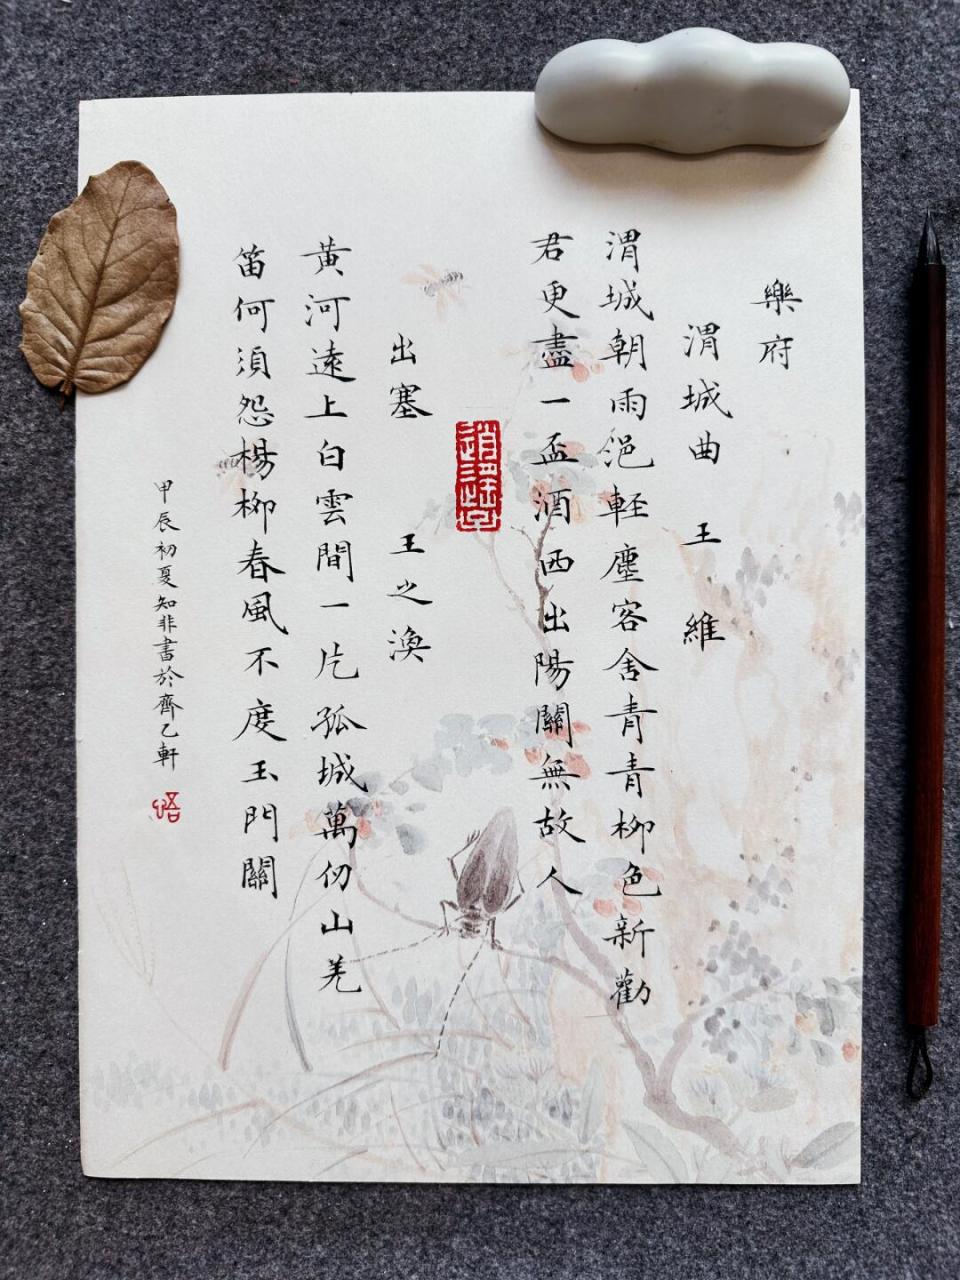 樂府
渭城曲 王維
渭城朝雨浥輕塵客舍青青柳色新勸
君更盡一盃酒西出陽關無故人
出塞 王之渙
黃河遠上白雲間一片孤城萬仞山羌
笛何須怨楊柳春風不度玉門關
甲辰初夏知非書於齊乙軒